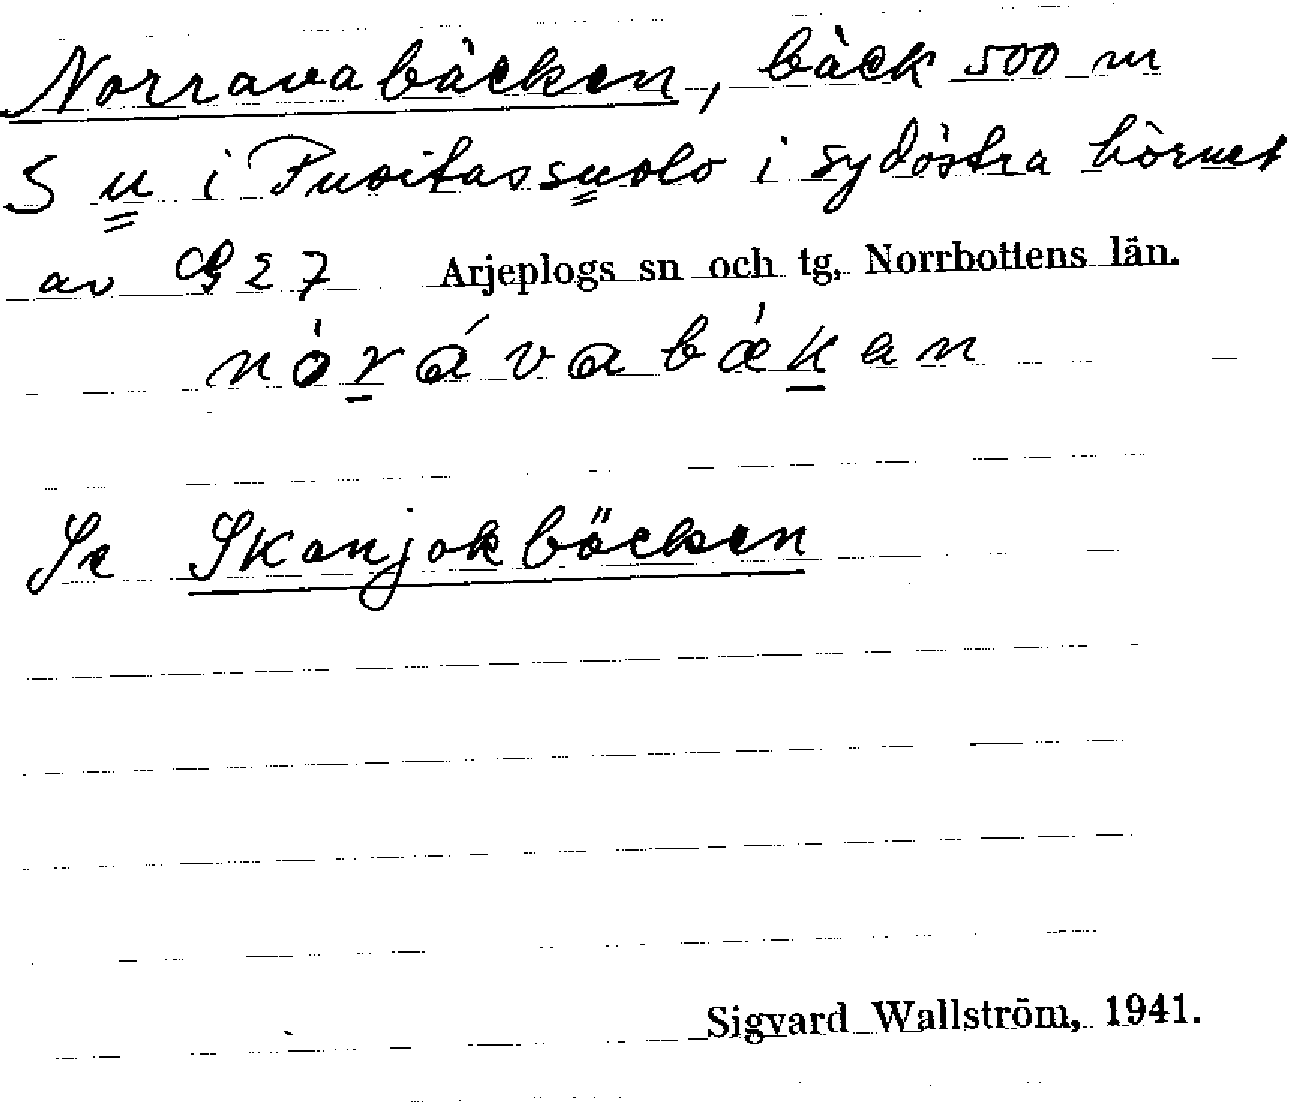 Norravabäcken, bäck 500 m
S u i Puoitassuolo i sydöstra hörnet
av 27 Arjeplogs sn och tg, Norrbottens län.
nórávabäkan
Se Skanjokbäcken
Sigvard Wallström, 1941.